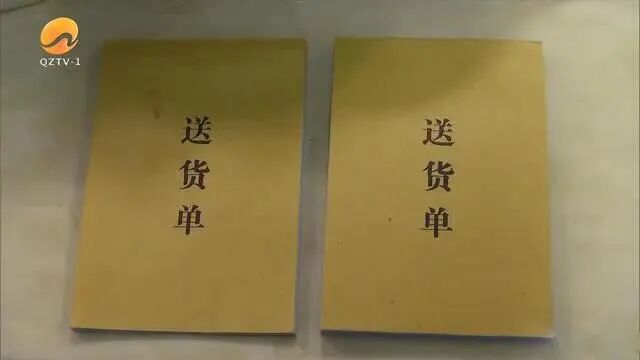 QZTV-1
送货单
送货单